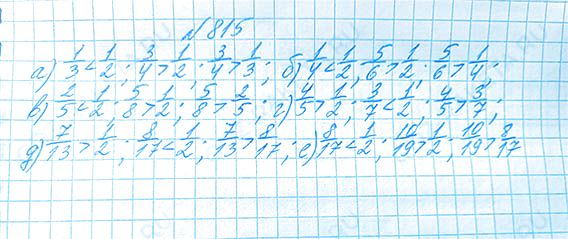 №815
а) 1/3 < 1/2; 3/4 > 1/2; 3/4 > 1/3; б) 1/4 < 1/2; 5/6 > 1/2; 5/6 > 1/4;
в) 2/5 < 1/2; 5/8 > 1/2; 5/8 > 2/5; г) 4/5 > 1/2; 3/7 < 1/2; 4/5 > 3/7;
д) 7/13 > 1/2; 8/17 < 1/2; 7/13 > 8/17; е) 8/17 < 1/2; 10/19 > 1/2; 10/19 > 8/17